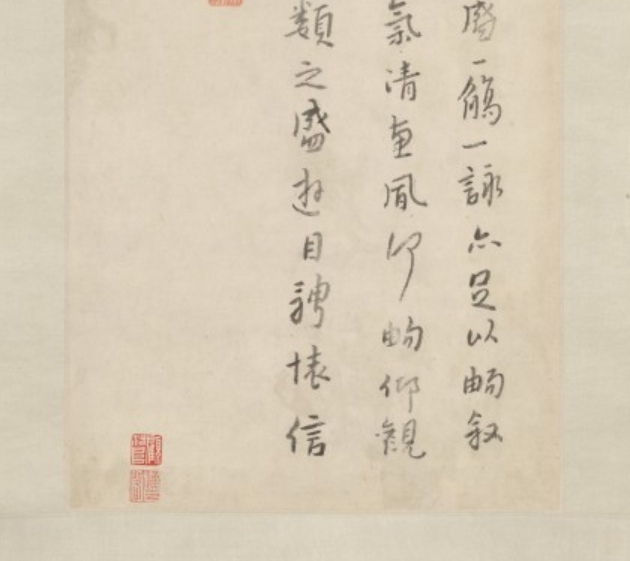 盛一觴一詠亦足以暢叙
氣清惠風和暢仰觀
類之盛遊目騁懷信